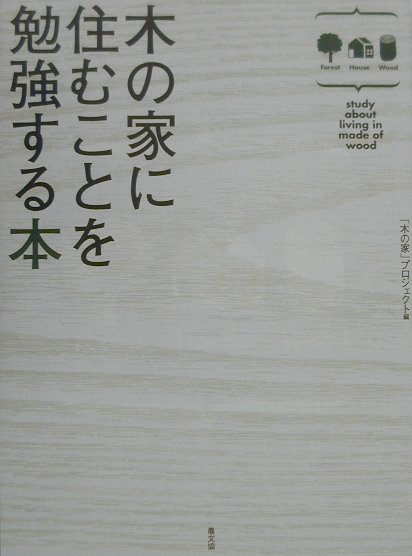 木の家に
住むことを
勉強する本
Forest House Wood
study
about
living in
made of
wood
「木の家」プロジェクト編
農文協